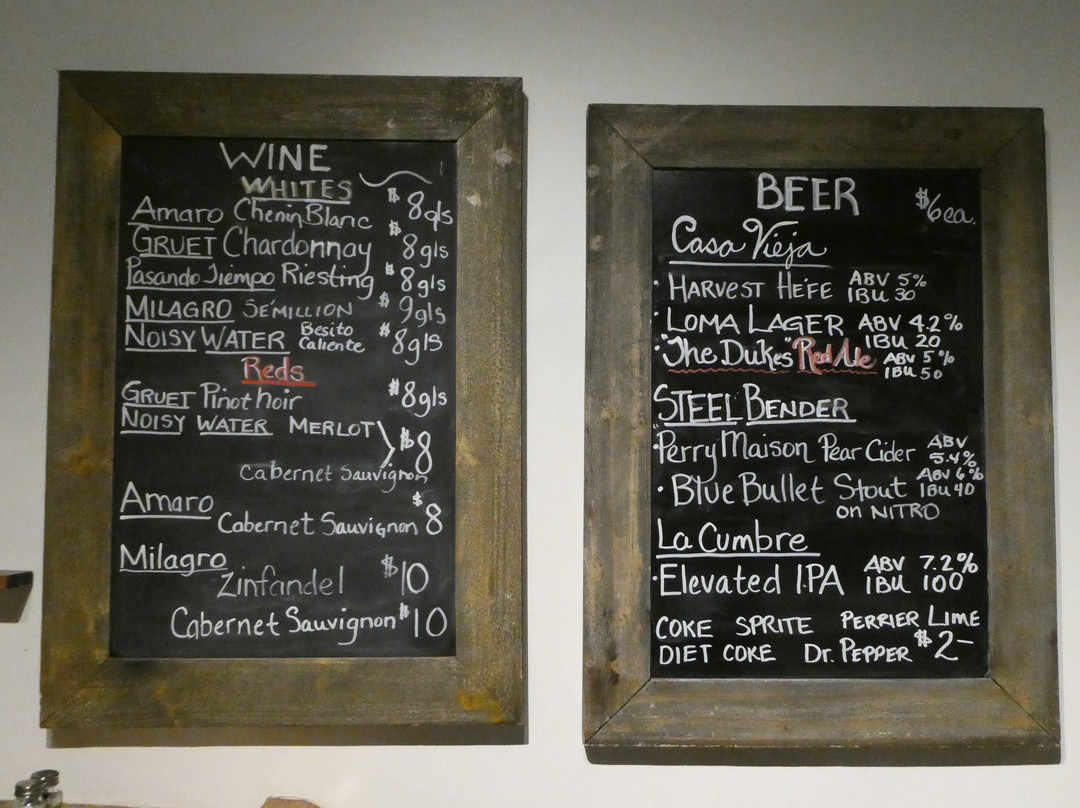 WINE
WHITES
Amaro Chenin Blanc $8gls
GRUET Chardonnay $8gls
Pasando Tiempo Riesting $8gls
MILAGRO SÉMILLION $9gls
NOISY WATER Besito Caliente $8gls
Reds
GRUET Pinot noir $8gls
NOISY WATER MERLOT
Cabernet Sauvignon $8
Amaro
Cabernet Sauvignon $8
Milagro
Zinfandel $10
Cabernet Sauvignon $10
BEER $6ea.
Casa Vieja
• HARVEST HEFE ABV 5% IBU 30
• LOMA LAGER ABV 4.2% IBU 20
• "The Dukes" Red Ale ABV 5% IBU 50
STEEL BENDER
• Perry Maison Pear Cider ABV 5.4%
• Blue Bullet Stout ABV 6% IBU 40
on NITRO
La Cumbre
• Elevated I.PA ABV 7.2% IBU 100
COKE SPRITE PERRIER LIME
DIET COKE Dr. PEPPER $2–